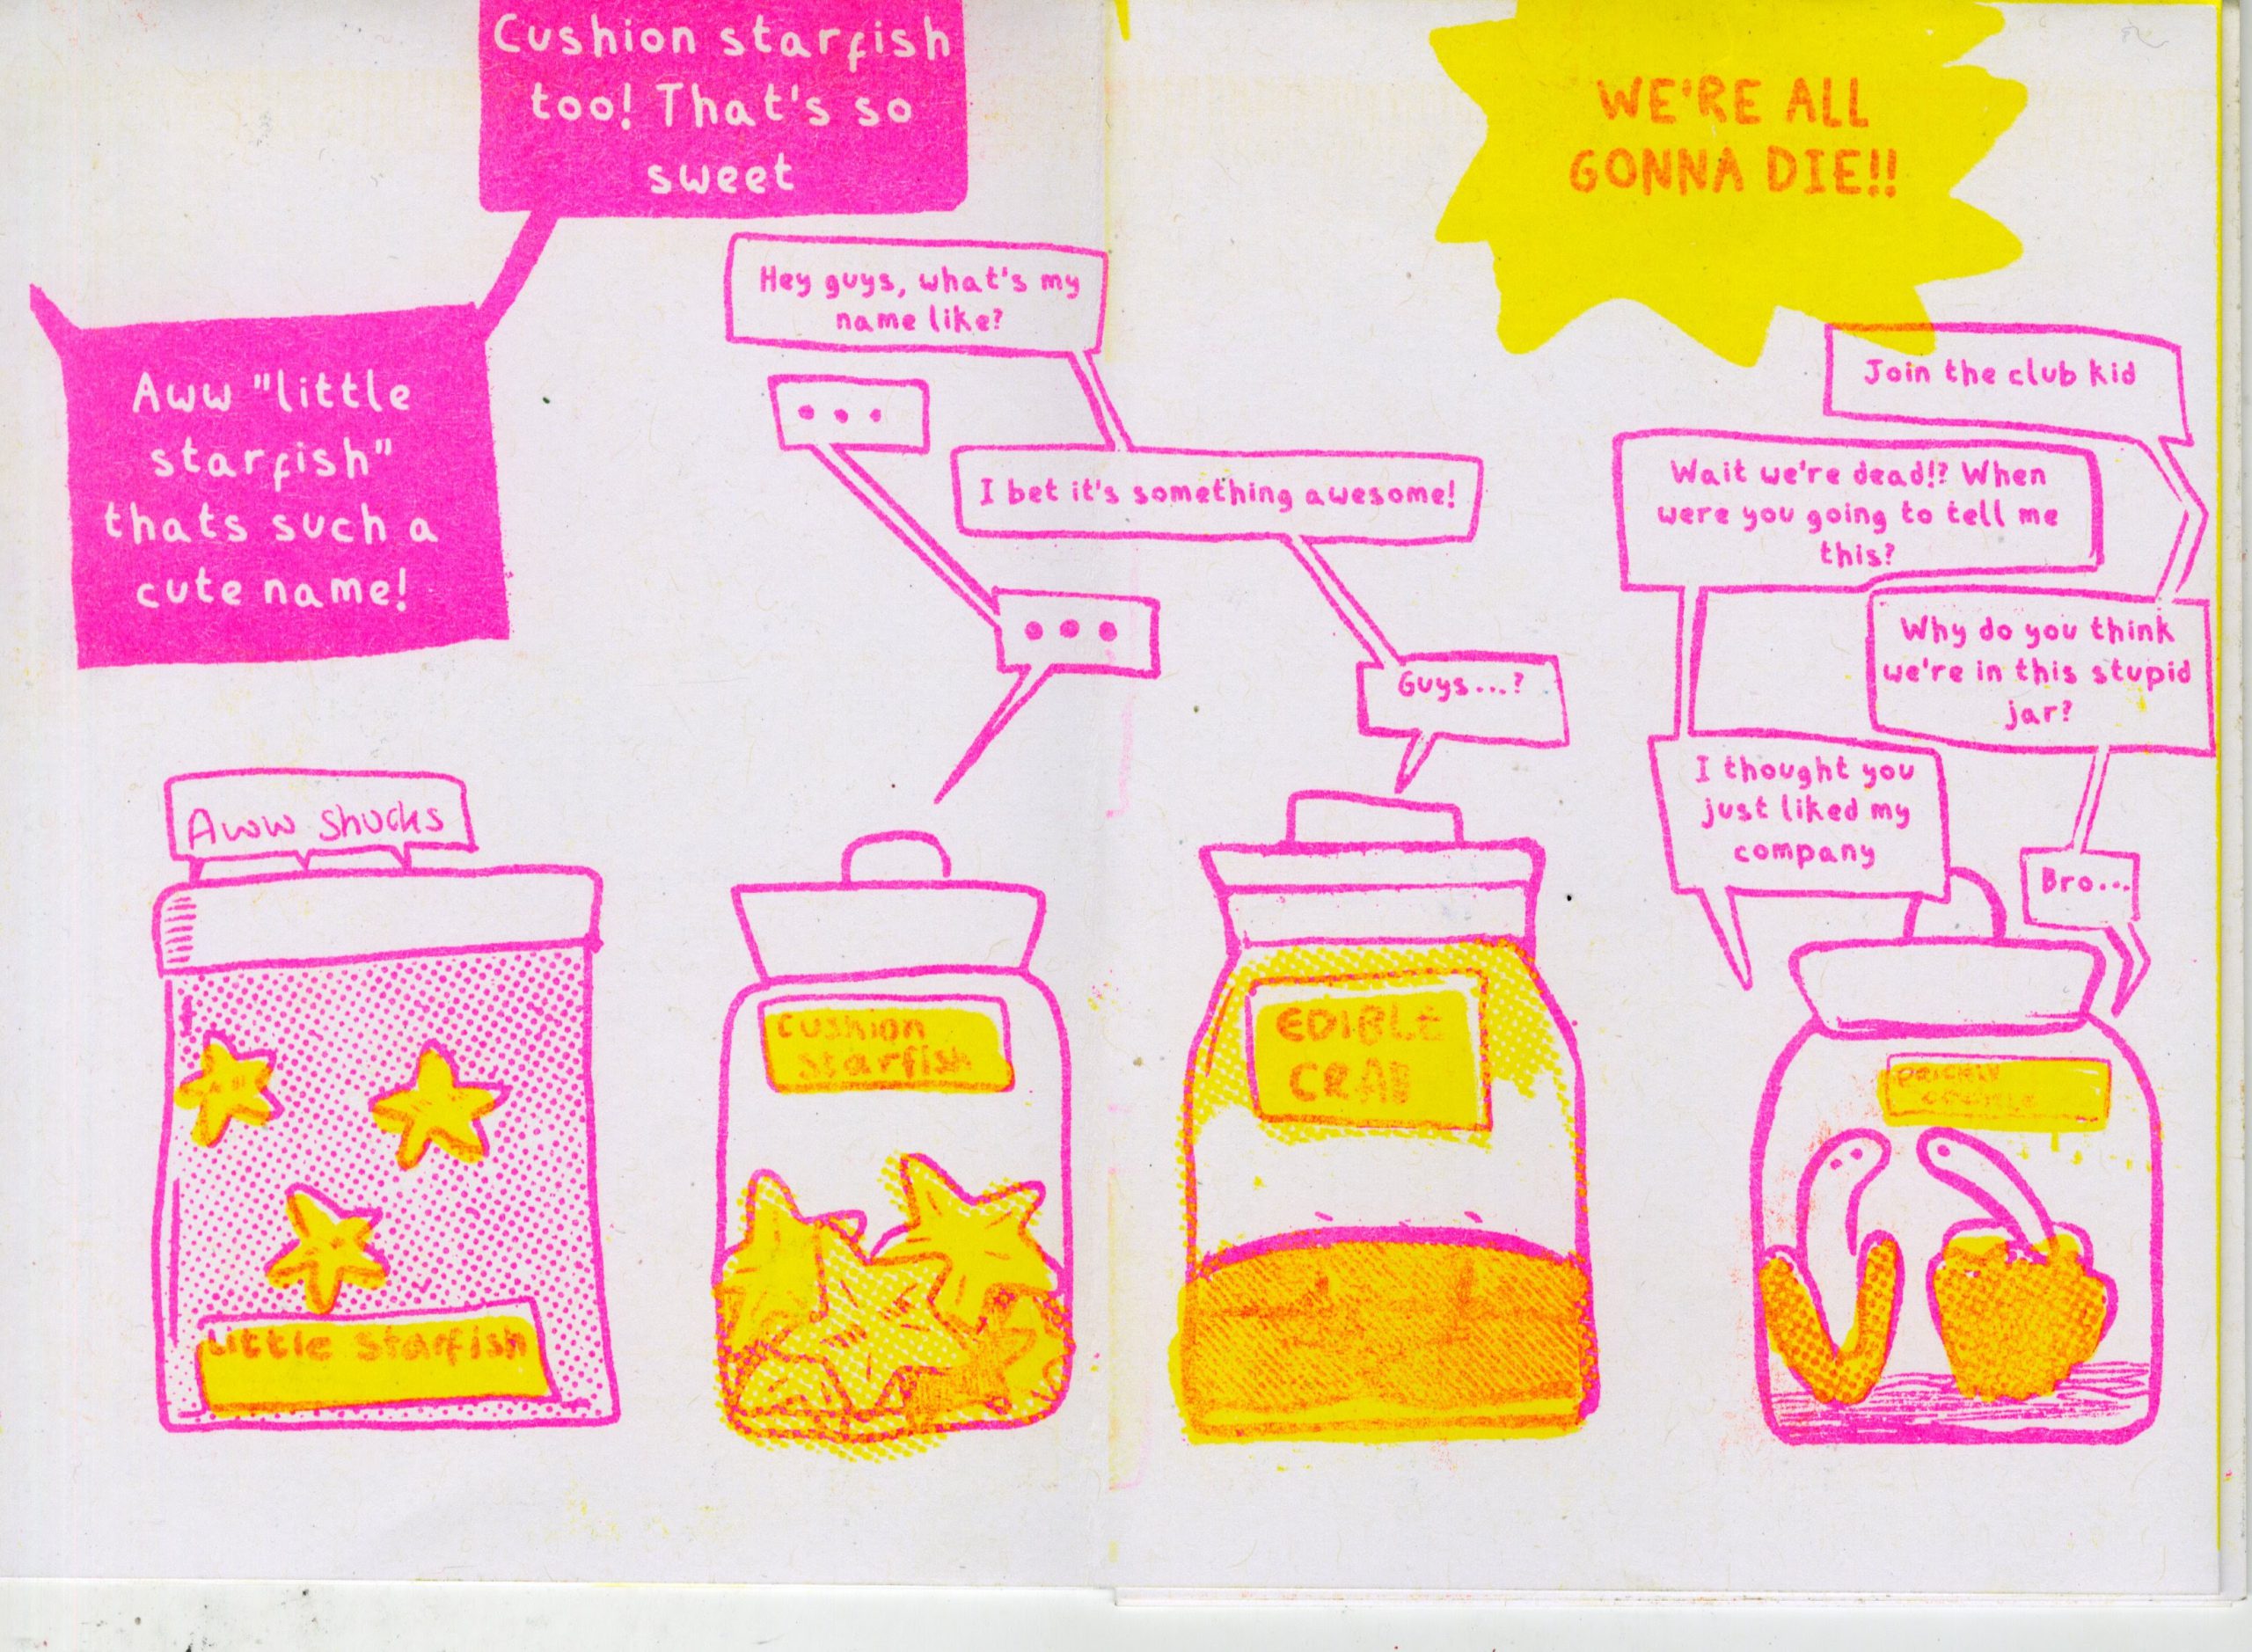 Cushion starfish
too! That's so
sweet
Aww "little
starfish"
thats such a
cute name!
Aww shucks
Hey guys, what's my
name like?
...
I bet it's something awesome!
...
Guys...?
WE'RE ALL
GONNA DIE!!
Join the club kid
Wait we're dead!? When
were you going to tell me
this?
Why do you think
we're in this stupid
jar?
I thought you
just liked my
company
Bro...
Little Starfish
Cushion
Starfish
EDIBLE
CRAB
PRICKLY
COCKLE